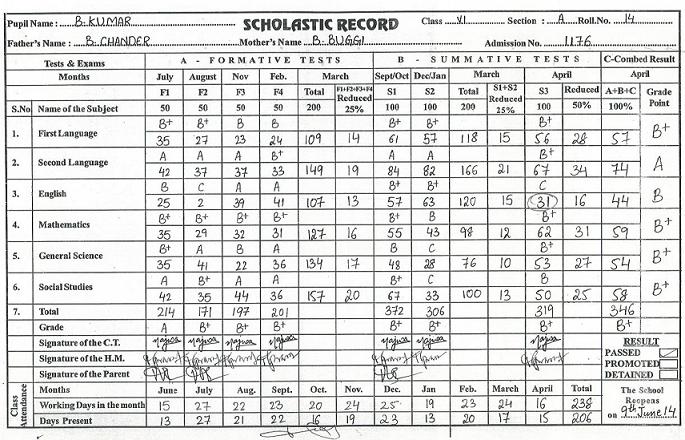 Pupil Name : B. KUMAR SCHOLASTIC RECORD Class VI Section : A Roll.No. 14
Father's Name B. CHANDER Mother's Name B. BUGGI Admission No. 1176
Tests & Exams A - FORMATIVE TESTS B - SUMMATIVE TESTS C-Combed Result
Months July August Nov Feb. March Sept/Oct Dec/Jan March April April
F1 F2 F3 F4 Total F1+F2+F3+F4 Reduced S1 S2 Total S1+S2 Reduced S3 Reduced A+B+C Grade Point
S.No Name of the Subject 50 50 50 50 200 25% 100 100 200 25% 100 50% 100%
1. First Language B+ B+ B B B+ B+ B+ B+
35 27 23 24 109 14 61 57 118 15 56 28 57
2. Second Language A A A B+ A A B+ A
42 37 37 33 149 19 84 82 166 21 67 34 74
3. English B C A A B+ B+ C B
25 2 39 41 107 13 57 63 120 15 31 16 44
4. Mathematics B+ B+ B+ B+ B+ B B+ B+
35 29 32 31 127 16 55 43 98 12 62 31 59
5. General Science B+ A B A B C B+
35 41 22 36 134 17 48 28 76 10 53 27 54
6. Social Studies A B+ A A B+ C B B+
42 35 44 36 157 20 67 33 100 13 50 25 58
7. Total 214 171 197 201 372 306 319 346
Grade A B+ B+ B+ B+ B+ B+ B+
Signature of the C.T. RESULT
Signature of the H.M. PASSED
PROMOTED
Signature of the Parent DETAINED
Class Attendance Months June July Aug. Sept. Oct. Nov. Dec. Jan Feb. March April Total The School
Working Days in the month 15 27 22 23 20 24 25 19 23 24 16 238 Reopens
Days Present 13 27 21 22 16 19 23 13 20 17 15 206 on 9th June 14